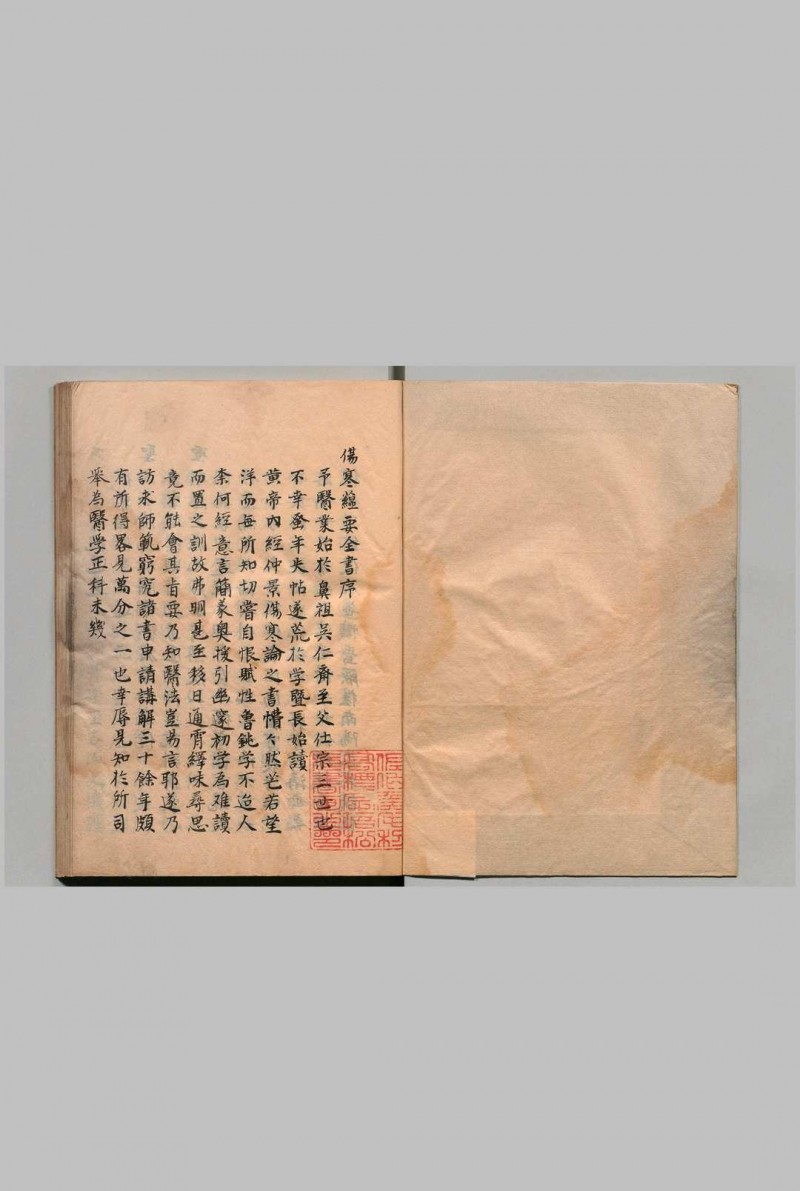 傷寒蘊要全書序
予醫業始於鼻祖吳仁齋至父仕宗三世也
不幸蚤年失怙遂荒於学暨長始讀
黄帝內經仲景傷寒論之書惜々然茫若望
洋而每所知切嘗自恨賦性魯鈍学不迨人
柰何經意言簡義奥援引幽邃初学為难讀
而置之訓故弗明甚至移日通宵繹味尋思
竟不能會其肯要乃知醫法豈易言耶遂乃
訪求師範窮究諸書申請講解三十餘年頗
有所得畧見萬分之一也幸辱見知於所司
舉為醫学正科未幾